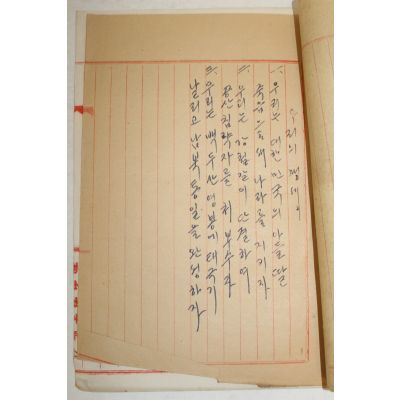 우리의 맹세
一. 우리는 대한민국의 아들 딸
죽음으로써 나라를 지키자
二. 우리는 강철같이 단결하여
공산침략자를 쳐부수자
三. 우리는 백두산 영봉에 태극기
날리고 남북통일을 완성하자